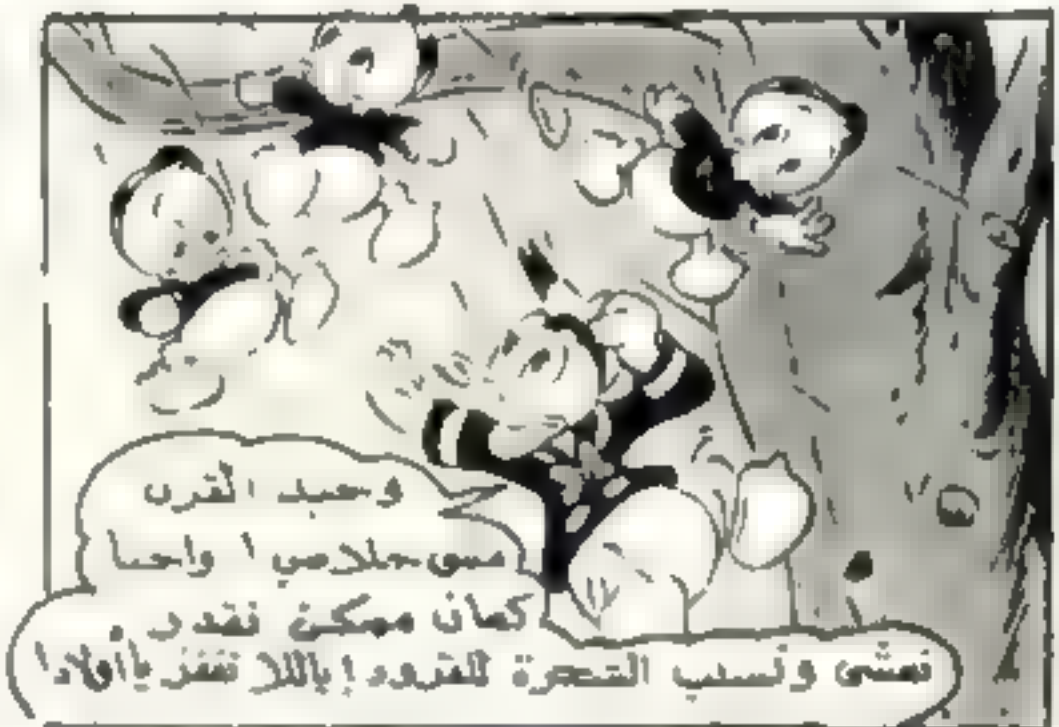 وحيد القرن
مش حلاصي ! واحنا
كمان ممكن نقدر
نمشي ونسيب الشجرة للقرود ! ياللا نقفز يا أولاد !